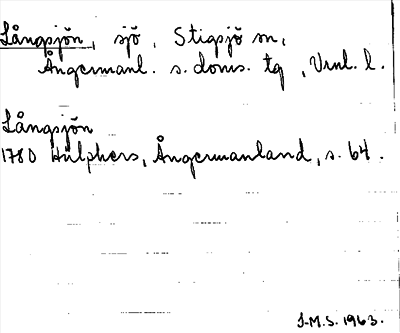 Långsjön, sjö, Stigsjö sn,
Ångermanl. s. doms. tg, Vrnl. l.
Långsjön
1780 Hülphers, Ångermanland, s. 64.
J.M.S. 1963.